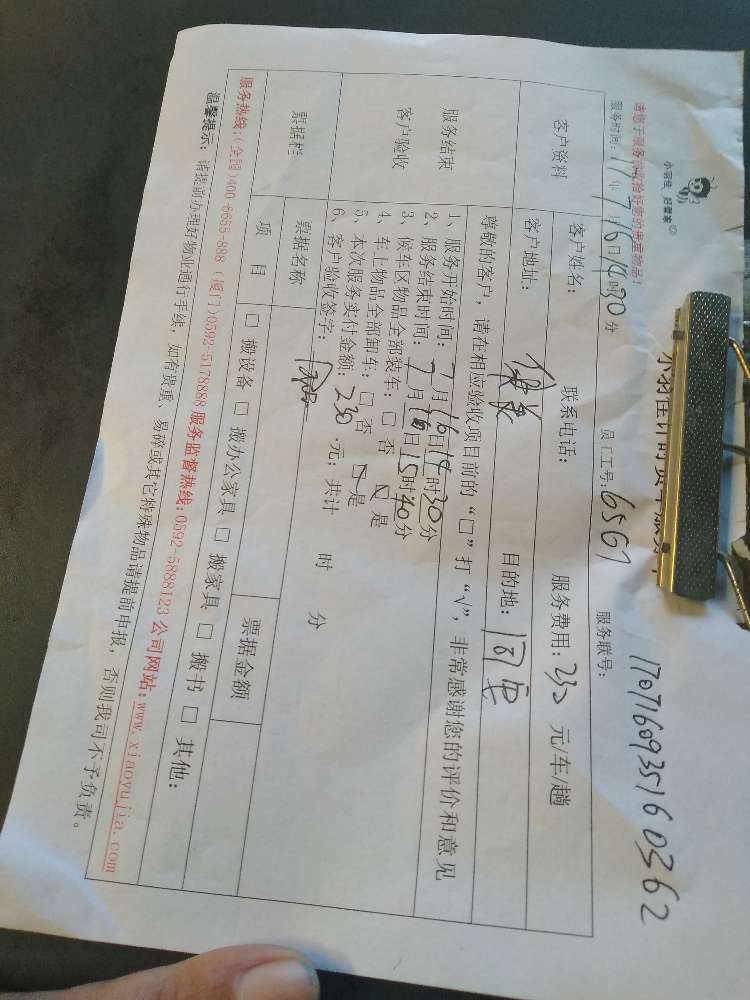 小羽佳 好管家
请您于服务前收拾好您的贵重物品!
170716093516 0362
服务时间: 17年7月16日14时30分 员工工号: 6561 服务联号:
客户资料
客户姓名: 联系电话: 服务费用: 230 元/车/趟
客户地址: 目的地: 同安
服务结束
客户验收
尊敬的客户，请在相应验收项目前的“□”打“√”，非常感谢您的评价和意见
1、服务开始时间: 7月16日14时30分
2、服务结束时间: 7月16日15时40分
3、候车区物品全部装车: □ 否 ☑ 是
4、车上物品全部卸车: □ 否 ☑ 是
5、本次服务实付金额: 230 元; 共计 时 分
6、客户验收签字:
票据栏
票据名称 票据金额
项 目 □ 搬设备 □ 搬办公家具 □ 搬家具 □ 搬书 □ 其他:
服务热线:(全国)400-6655-888 (厦门)0592-5178888 服务监督热线:0592-5888123 公司网站:www.xiaoyujia.com
温馨提示: 请提前办理好物业通行手续，如有贵重、易碎或其它特殊物品请提前申报，否则我司不予负责。